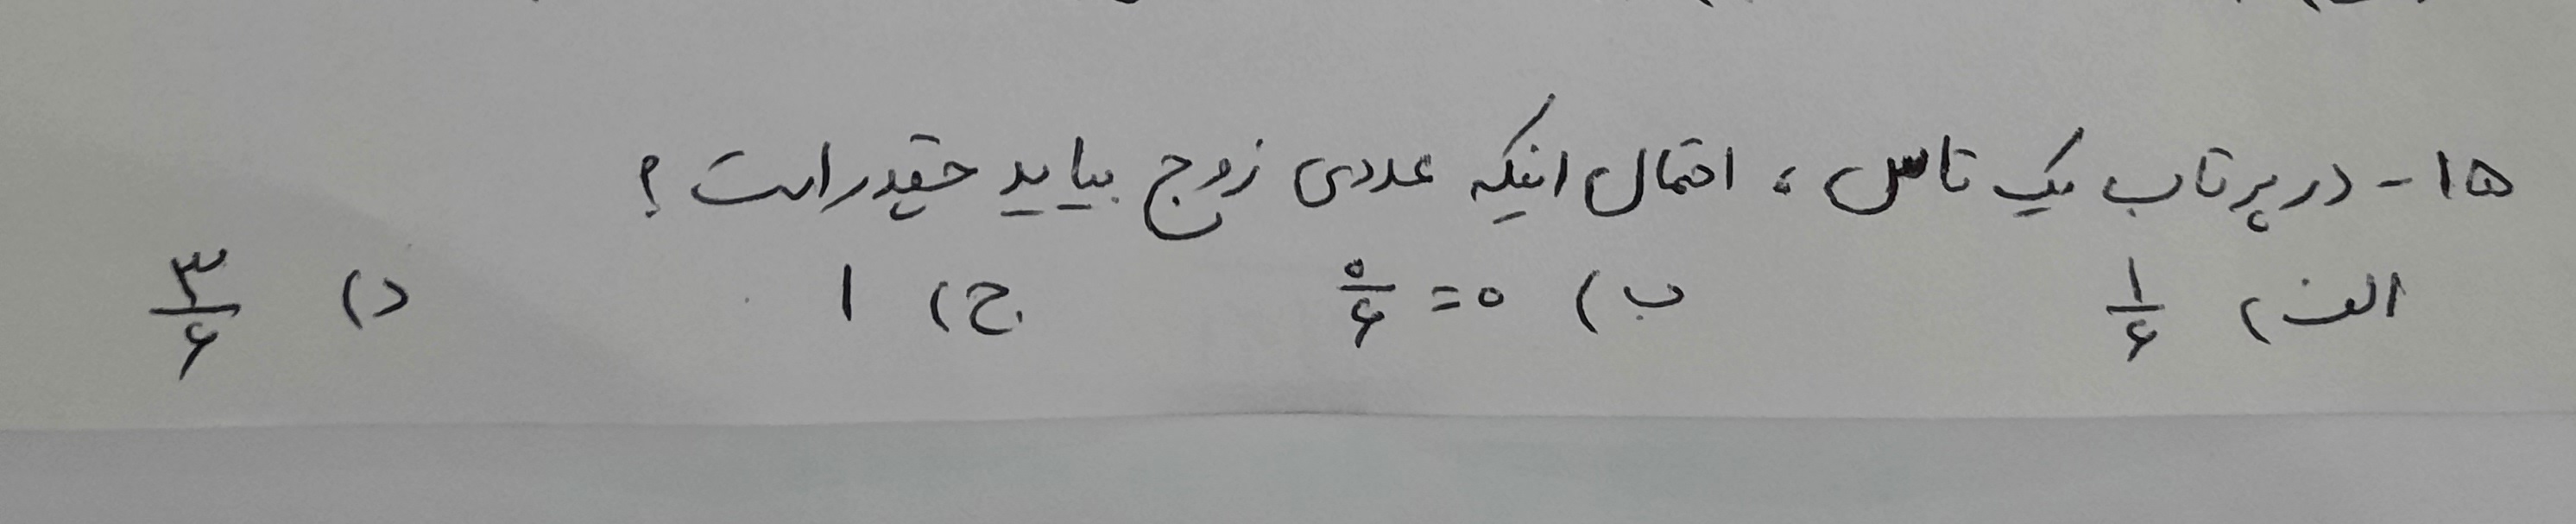 ۱۵- در پرتاب یک تاس، احتمال اینکه عددی زوج بیاید چقدر است؟
الف) ۱/۶ ب) ۰=۰/۶ ج) ۱ د) ۳/۶